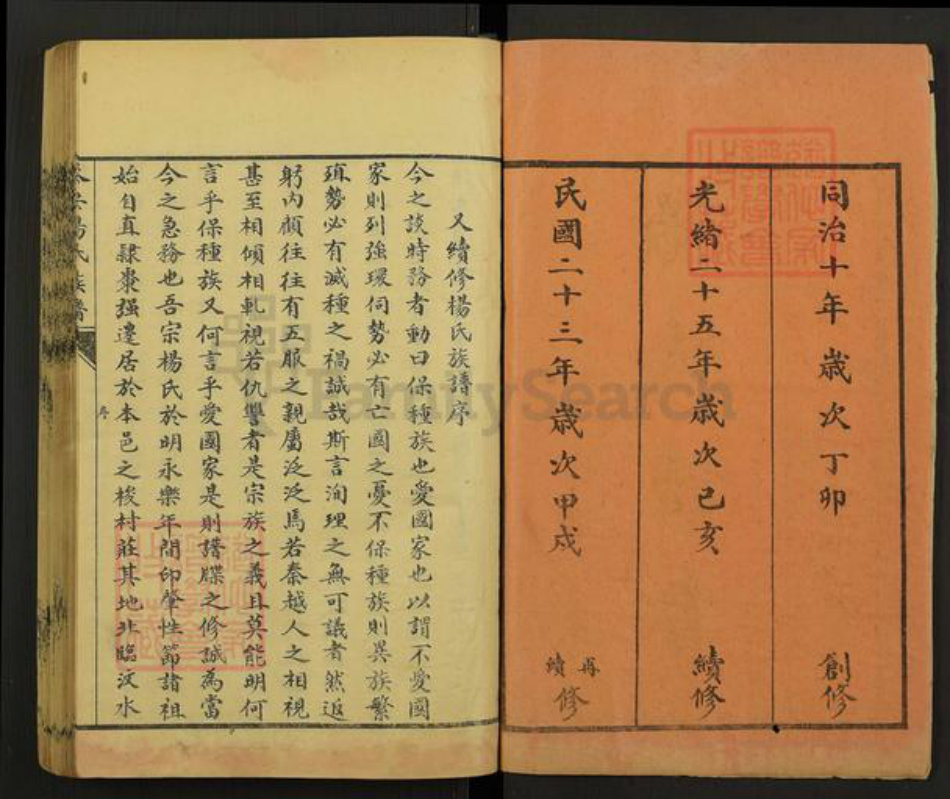 同治十年歲次丁卯 創修
光緒二十五年歲次己亥 續修
民國二十三年歲次甲戌 再續修
又續修楊氏族譜序
今之談時務者動曰保種族也愛國家也以謂不愛國
家則列強環伺勢必有亡國之憂不保種族則異族繁
殖勢必有滅種之禍誠哉斯言洵理之無可議者然返
躬內顧往往有五服之親屬泛泛焉若秦越人之相視
甚至相傾相軋視若仇讐者是宗族之義且莫能明何
言乎保種族又何言乎愛國家是則譜牒之修誠為當
今之急務也吾宗楊氏於明永樂年間印肇性節諸祖
始自直隸棗强遷居於本邑之梭村莊其地北臨汶水
楊氏族譜
序
FamilySearch